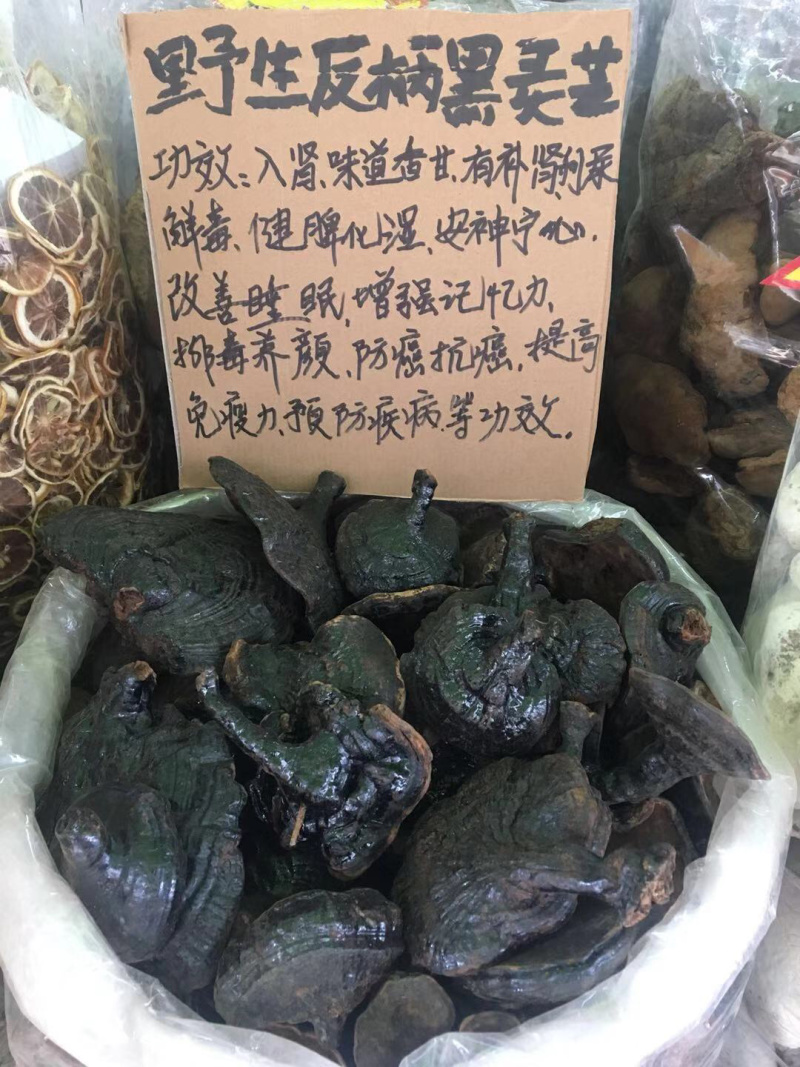 野生反柄黑灵芝
功效：入肾、味道香甘、有补肾、利尿
解毒、健脾化湿、安神宁心、
改善睡眠、增强记忆力、
排毒养颜、防癌抗癌、提高
免疫力、预防疾病、等功效。